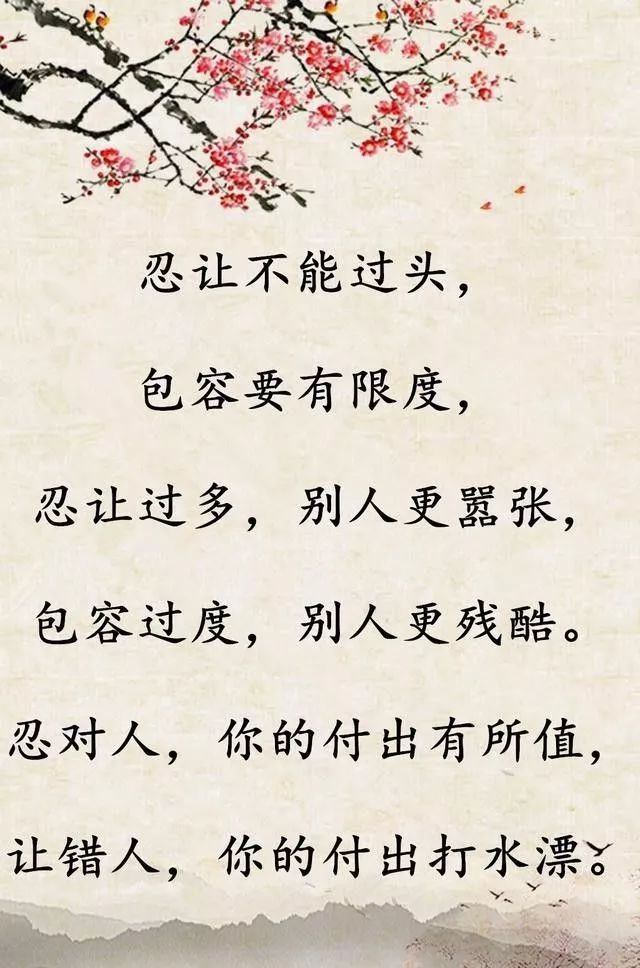 忍让不能过头，
包容要有限度，
忍让过多，别人更嚣张，
包容过度，别人更残酷。
忍对人，你的付出有所值，
让错人，你的付出打水漂。